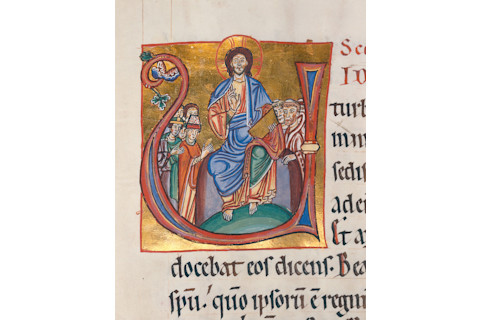 Sec
turb
sedis
ad ei
Et a
docebat eos dicens. Bea
spū. quō ipsorū ē regn